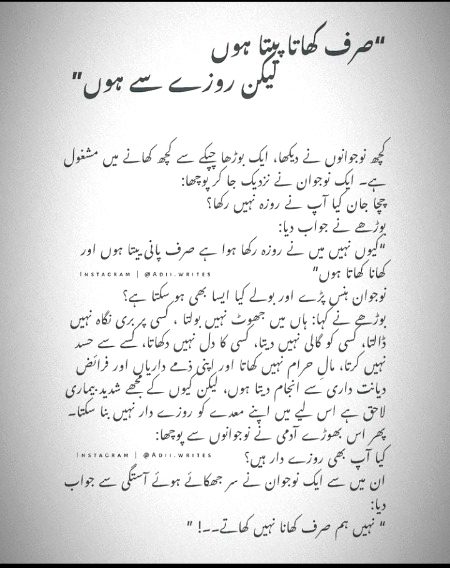 “صرف کھاتا پیتا ہوں
لیکن روزے سے ہوں”
کچھ نوجوانوں نے دیکھا، ایک بوڑھا چپکے سے کچھ کھانے میں مشغول
ہے۔ ایک نوجوان نے نزدیک جا کر پوچھا:
چچا جان کیا آپ نے روزہ نہیں رکھا؟
بوڑھے نے جواب دیا:
“کیوں نہیں میں نے روزہ رکھا ہوا ہے صرف پانی پیتا ہوں اور
کھانا کھاتا ہوں”
INSTAGRAM | @ADII.WRITES
نوجوان ہنس پڑے اور بولے کیا ایسا بھی ہو سکتا ہے؟
بوڑھے نے کہا: ہاں میں جھوٹ نہیں بولتا ، کسی پر بری نگاہ نہیں
ڈالتا، کسی کو گالی نہیں دیتا، کسی کا دل نہیں دکھاتا، کسے سے حسد
نہیں کرتا، مالِ حرام نہیں کھاتا اور اپنی ذمے داریاں اور فرائض
دیانت داری سے انجام دیتا ہوں، لیکن کیوں کے مجھے شدید بیماری
لاحق ہے اس لیے میں اپنے معدے کو روزے دار نہیں بنا سکتا۔
پھر اس بھوڑے آدمی نے نوجوانوں سے پوچھا:
کیا آپ بھی روزے دار ہیں؟
INSTAGRAM | @ADII.WRITES
ان میں سے ایک نوجوان نے سر جھکائے ہوئے آستگی سے جواب
دیا:
“ نہیں ہم صرف کھانا نہیں کھاتے۔۔! ”